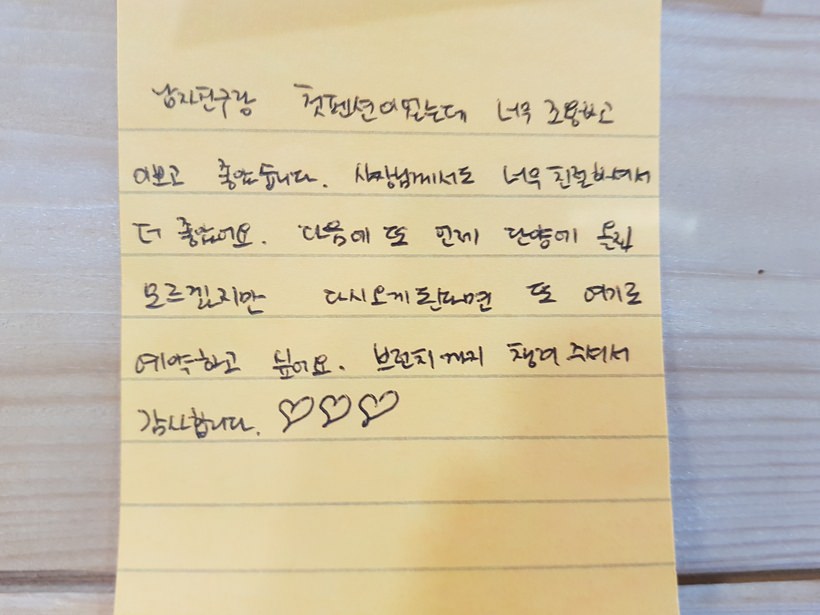 남자친구랑 첫펜션이였는데 너무 조용하고
이쁘고 좋았습니다. 사장님께서도 너무 친절하셔서
더 좋았어요. 다음에 또 언제 단양에 올진
모르겠지만 다시오게된다면 또 여기로
예약하고 싶어요. 브런치까지 챙겨주셔서
감사합니다. ♡♡♡